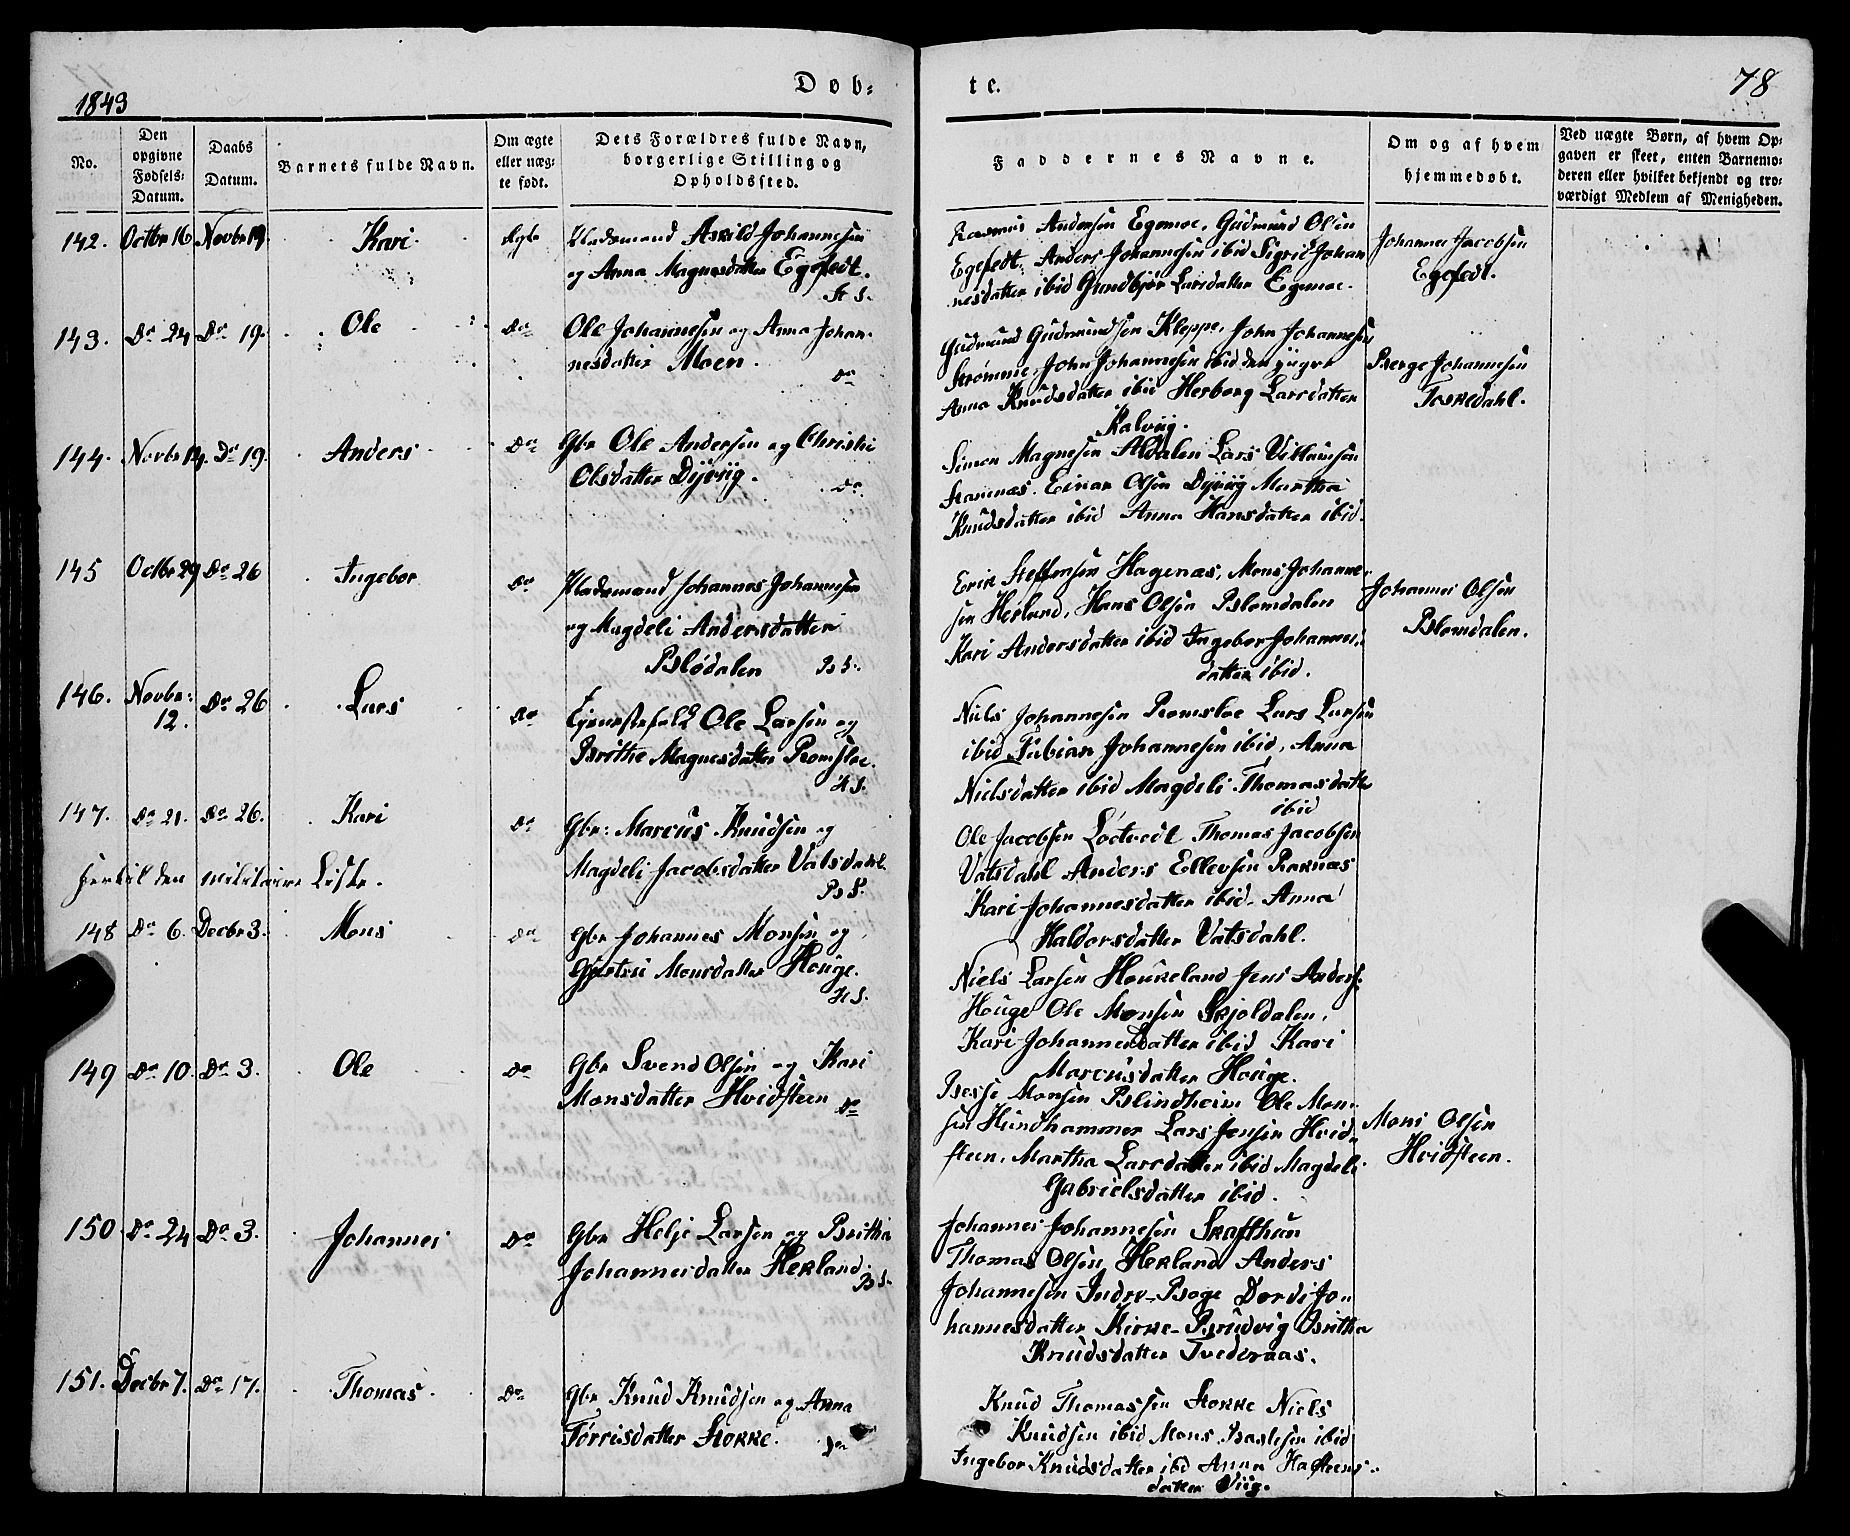 1843
Døb=
te.
78
No.
Den opgivne Fødsels= Datum.
Daabs Datum.
Barnets fulde Navn.
Om ægte eller uæg= te født.
Dets Forældres fulde Navn, borgerlige Stilling og Opholdssted.
Faddernes Navne.
Om og af hvem hjemmedøbt.
Ved uægte Børn, af hvem Op= gaven er skeet, enten Barnemo= deren eller hvilket bekjendt og tro= værdigt Medlem af Menigheden.
142. Octbr 16 Novbr 19. Kari Ægte Pladsmand Askild Johannesen
og Anna Magnesdatter Egefedt.
St S.
Rasmus Andersen Egemoe, Gudmund Olsen
Egefedt, Anders Johannesen ibid Sigrid Johan
nesdatter ibid Gundbjør Larsdatter Egemoe.
Johannes Jacobsen
Egefedt.
143. Do 24 Do 19. Ole Do Ole Johannesen og Anna Johan-
nesdatter Moen.
Do
Gudmund Gudmundsen Kleppe, John Johannesen
Strømme, John Johannesen ibid den yngre
Anna Knudsdatter ibid Herborg Larsdatter
Kalviig.
Berge Johannesen
Toskedahl.
144. Novbr 14. Do 19. Anders Do Gbr Ole Andersen og Christi
Olsdatter Dyviig.
Do
Simon Magnesen Aldalen Lars Villumsen
Stamnæs. Einar Olsen Dyviig Martha
Knudsdatter ibid Anna Hansdatter ibid.
145 Octbr 29 Do 26 Ingebor Do Pladsmand Johannes Johannesen
og Magdeli Andersdatter
Blødalen B S.
Erik Steffensen Hagenæs, Mons Johanne-
sen Herland, Hans Olsen Blomdalen
Kari Andersdatter ibid Ingebor Johannes-
datter ibid.
Johannes Olsen
Blomdalen.
146. Novbr: 12. Do 26 Lars Do Tjenestefolk Ole Larsen og
Brithe Magnesdatter Romsloe.
H S.
Niels Johannesen Romsloe Lars Larsen
ibid Fabian Johannesen ibid, Anna
Nielsdatter ibid Magdeli Thomasdatte
ibid
147. Do 21. Do 26. Kari Do Gbr: Marcus Knudsen og
Magdeli Jacobsdatter Vatsdahl.
B S.
Ole Jacobsen Løtvedt Thomas Jacobsen
Vatsdahl Anders Ellevsen Raknæs
Kari Johannesdatter ibid. Anna
Haldorsdatter Vatsdahl.
hertil den militaire Liste.
148 Do 6. Decbr 3. Mons Do Gbr Johannes Monsen og
Gjertru Monsdatter Houge.
H S.
Niels Larsen Houkeland Jens Anders.
Houge Ole Monsen Skjoldalen,
Kari Johannesdatter ibid Kari
Marcusdatter Houge.
149 Do 10. Do 3. Ole Do Gbr Svend Olsen og Kari
Monsdatter Hvidsteen Do
Besse Monsen Blindheim Ole Mon-
sen Hundhammer Lars Jensen Hvid-
steen. Martha Larsdatter ibid Magdeli
Gabrielsdatter ibid.
Mons Olsen
Hvidsteen.
150 Do 24 Do 3. Johannes Do Gbr Helje Larsen og Britha
Johannesdatter Herland.
B S.
Johannes Johannesen Skafthun
Thomas Olsen Herland Anders
Johannesen Indre-Boge Dordi Jo-
hannesdatter Kirke-Brudvig Britha
Knudsdatter Tvederaas.
151. Decbr 7. Do 17. Thomas Do Gbr Knud Knudsen og Anna
Torrisdatter Stokke.
Do
Knud Thomassen Stokke Niels
Knudsen ibid Mons Baslesen ibid
Ingebor Knudsdatter ibd Anna Hasteens-
datter Viig.